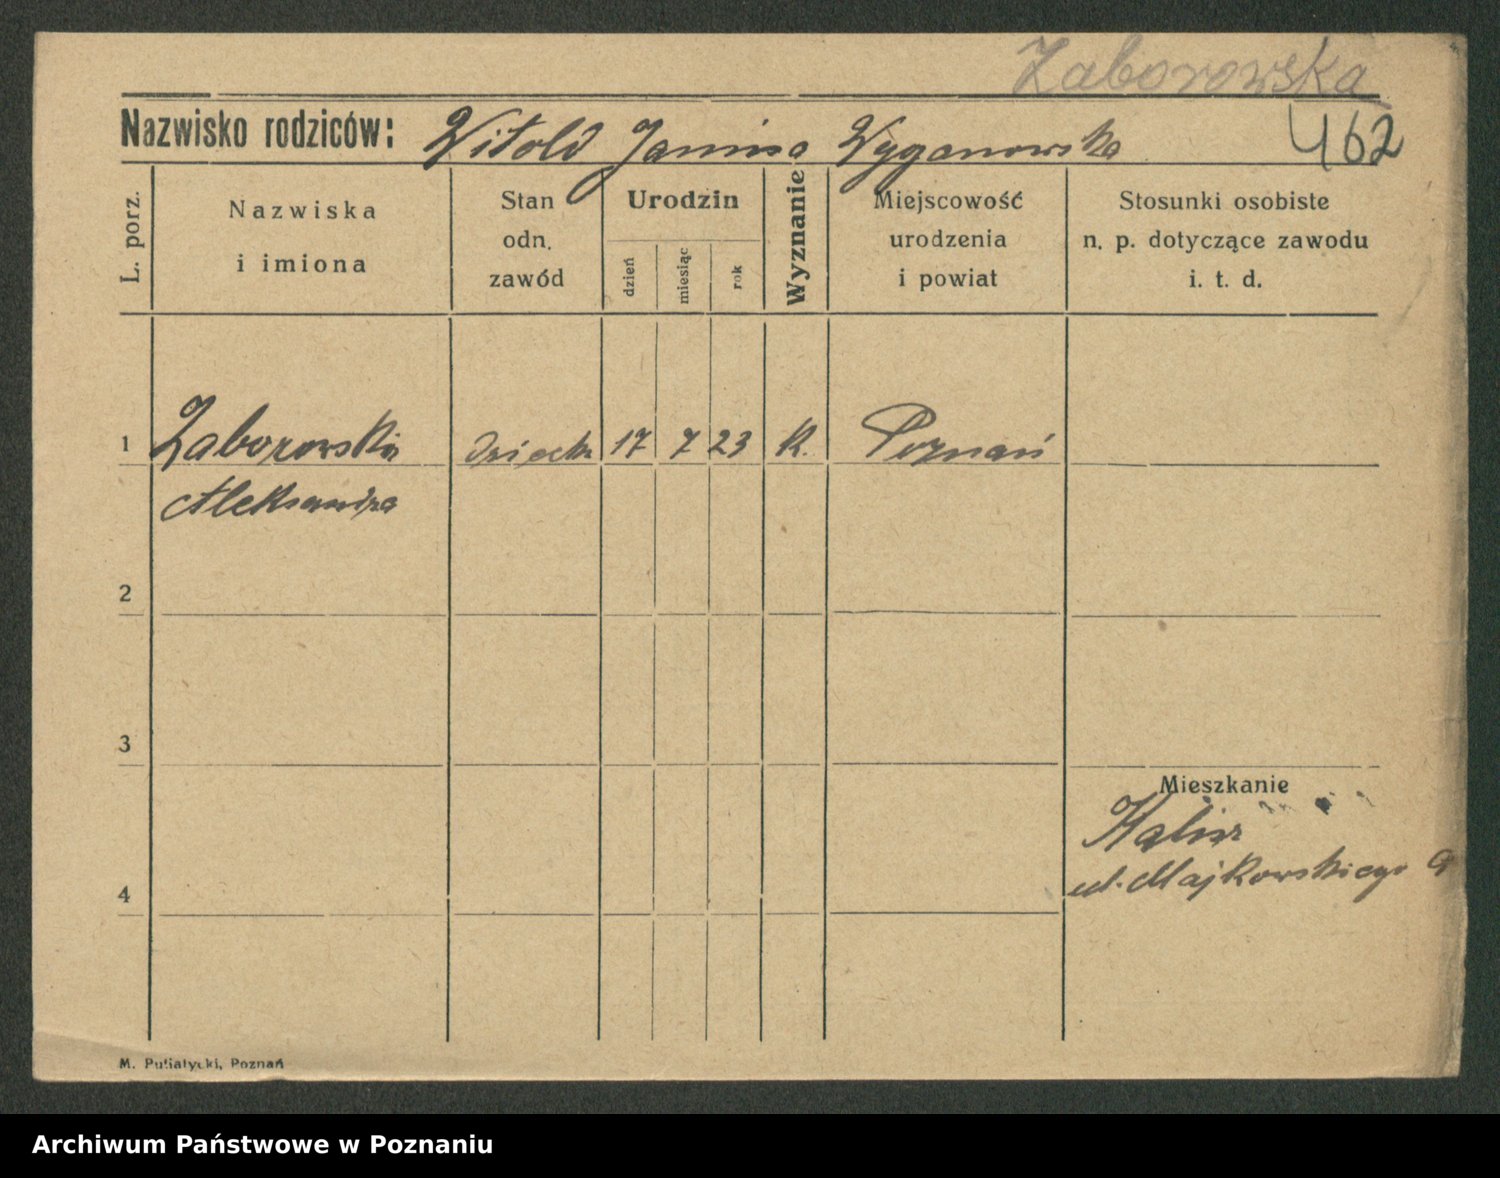 Zaborowska
Nazwisko rodziców: Witold Janina Wyganowska
462
L. porz.
Nazwiska
i imiona
Stan
odn.
zawód
Urodzin
dzień
miesiąc
rok
Wyznanie
Miejscowość
urodzenia
i powiat
Stosunki osobiste
n. p. dotyczące zawodu
i. t. d.
1 Zaborowska dziecko 17 7 23 K. Poznań
Aleksandra
2
3
Mieszkanie
Kalisz
ul. Majkowskiego
4
M. Putiatycki, Poznań
Archiwum Państwowe w Poznaniu